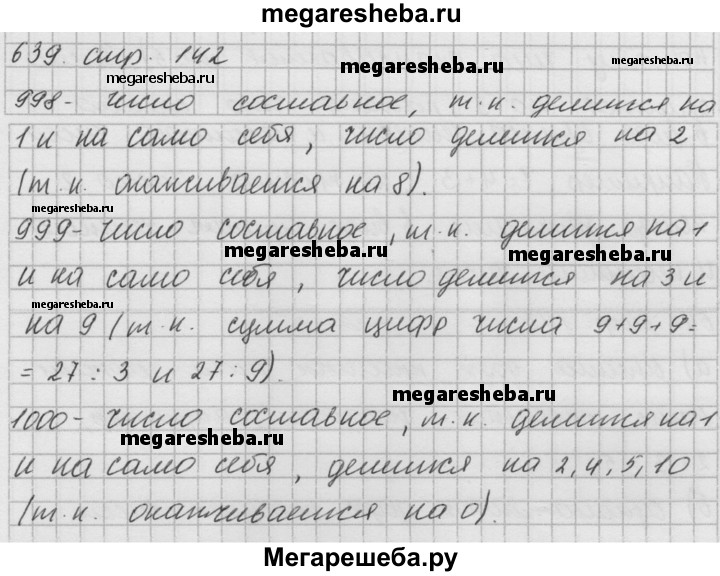 megaresheba.ru
639. стр. 142
megaresheba.ru megaresheba.ru megaresheba.ru
998- число составное, т.к. делится на
1 и на само себя, число делится на 2
(т.к. оканчивается на 8).
megaresheba.ru
999- число составное, т.к. делится на 1
megaresheba.ru megaresheba.ru
и на само себя, число делится на 3 и
megaresheba.ru
на 9 (т.к. сумма цифр числа 9+9+9=
= 27 : 3 и 27 : 9).
megaresheba.ru
1000- число составное, т.к. делится на 1
megaresheba.ru
и на само себя, делится на 2, 4, 5, 10
(т.к. оканчивается на 0).
Мегарешеба.ру